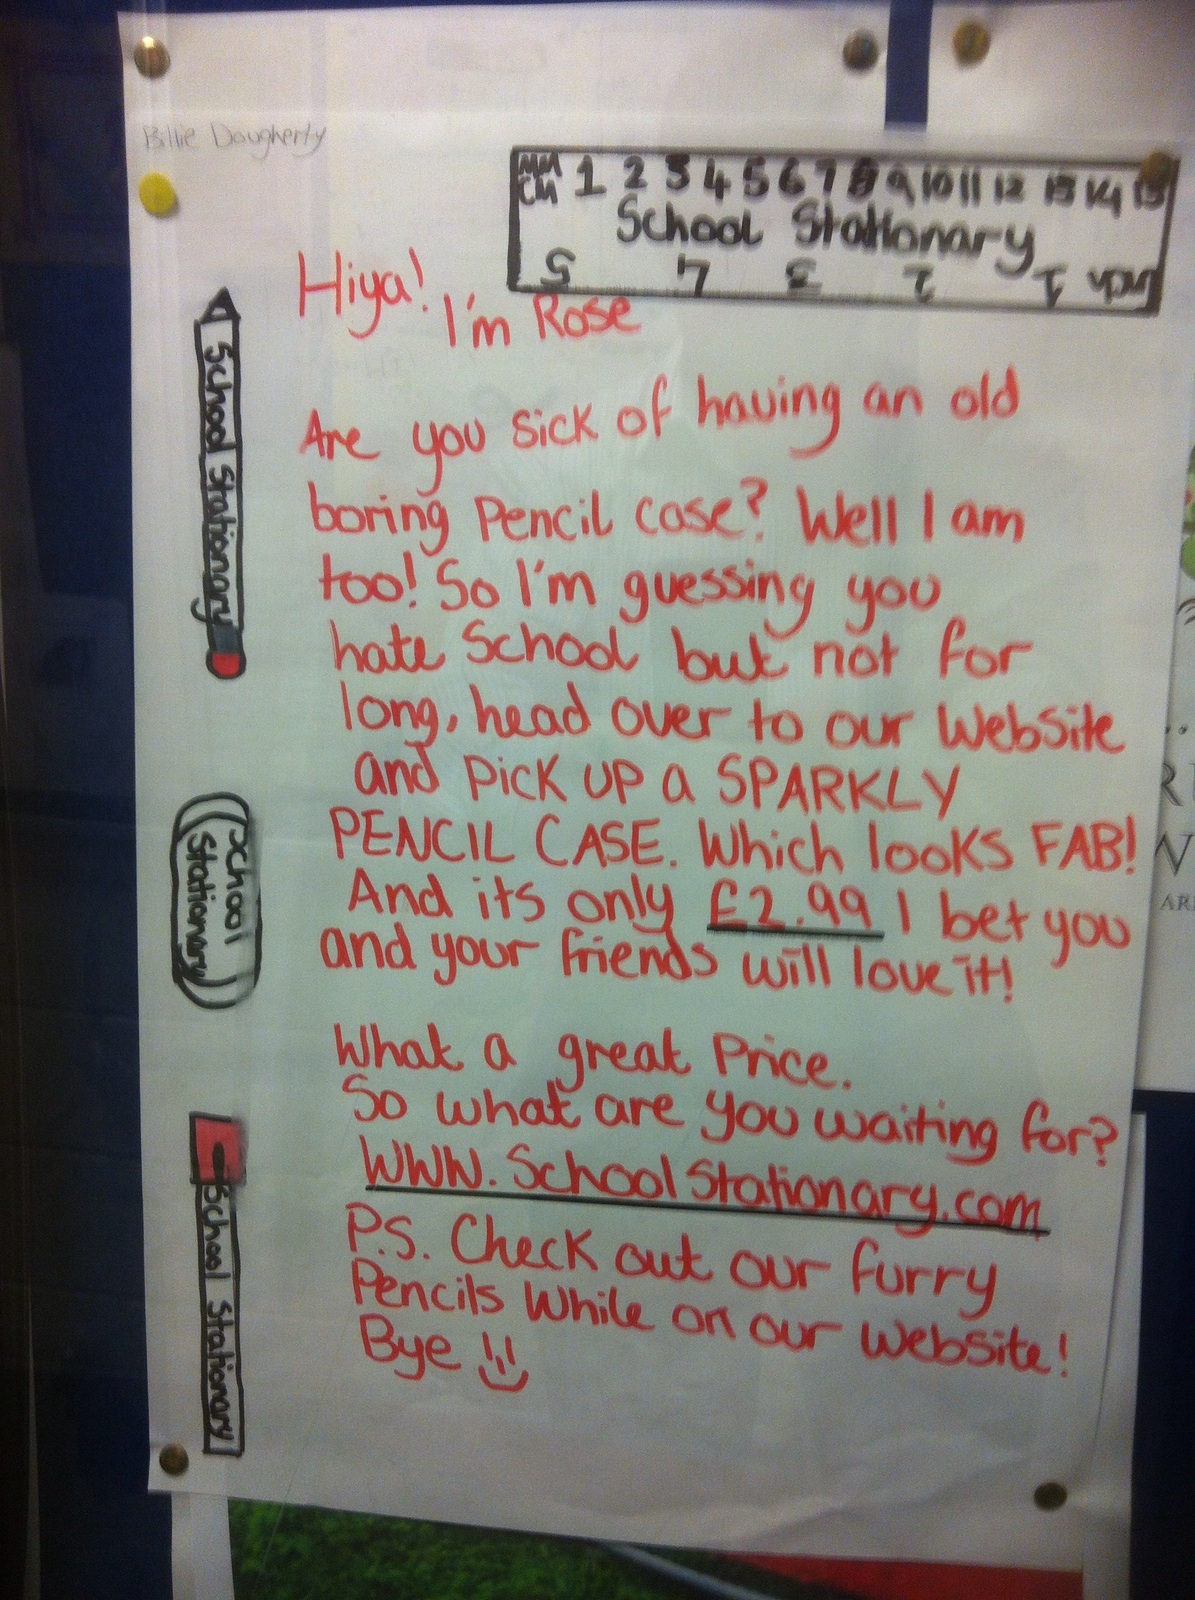 Billie Dougherty
MM 1 2 3 4 5 6 7 8 9 10 11 12 13 14 15
CM
School Stationary
inch 1 2 3 4 5
Hiya! I'm Rose
Are you sick of having an old
boring Pencil case? Well I am
too! So I'm guessing you
hate School but not for
long, head over to our Website
and PICK UP a SPARKLY
PENCIL CASE. Which looks FAB!
And its only £2.99 I bet you
and your friends will love it!
What a great Price.
So what are you waiting for?
WWW.SchoolStationary.com
P.S. Check out our furry
Pencils While on our Website!
Bye
School Stationary
School
Stationary
School Stationary